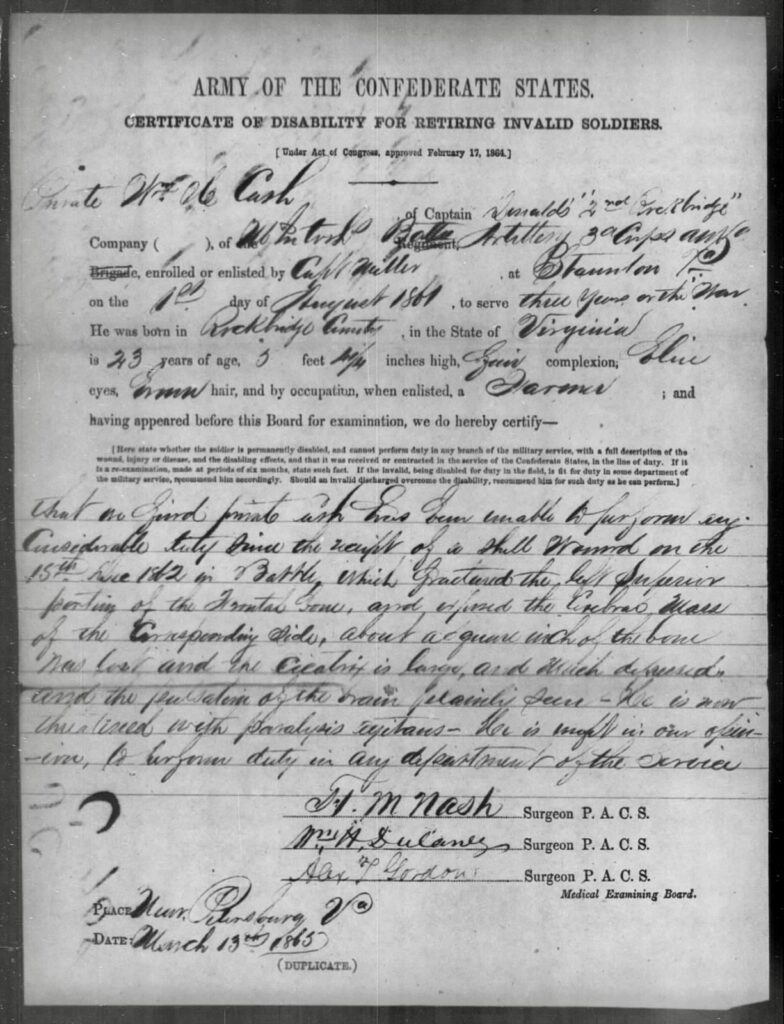 ARMY OF THE CONFEDERATE STATES.
CERTIFICATE OF DISABILITY FOR RETIRING INVALID SOLDIERS.
[Under Act of Congress, approved February 17, 1864.]
Private Wm H Cash
of Captain Donalds' "2nd Rockbridge"
Company ( ), of McIntosh's Batta Regiment, Artillery 3d Corps
Brigade, enrolled or enlisted by Capt Miller, at Staunton Va
on the 1st day of August 1861, to serve three Years or the War
He was born in Rockbridge County, in the State of Virginia
is 23 years of age, 5 feet 4¼ inches high, fair complexion, Blue
eyes, Brown hair, and by occupation, when enlisted, a Farmer; and
having appeared before this Board for examination, we do hereby certify—
[Here state whether the soldier is permanently disabled, and cannot perform duty in any branch of the military service, with a full description of the
wound, injury or disease, and the disabling effects, and that it was received or contracted in the service of the Confederate States, in the line of duty. If it
is a re-examination, made at periods of six months, state such fact. If the invalid, being disabled for duty in the field, is fit for duty in some department of
the military service, recommend him accordingly. Should an invalid discharged overcome the disability, recommend him for such duty as he can perform.]
that we find private Cash has been unable to perform any
Considerable duty since the receipt of a shell Wound on the
13th Dec 1862 in Battle, which fractured the left Superior
portion of the Frontal bone, and exposed the Cerebral Mass
of the Corresponding side, about a square inch of the bone
was lost and the Cicatrix is large, and much depressed,
and the pulsation of the brain plainly seen - He is now
threatened with paralysis agitans - He is unfit in our opin-
-ion, to perform duty in any department of the service
H. M Nash Surgeon P. A. C. S.
Wm H. Dulaney Surgeon P. A. C. S.
Alex T Gordon Surgeon P. A. C. S.
Medical Examining Board.
PLACE: Near Petersburg Va
DATE: March 13th 1865
(DUPLICATE.)